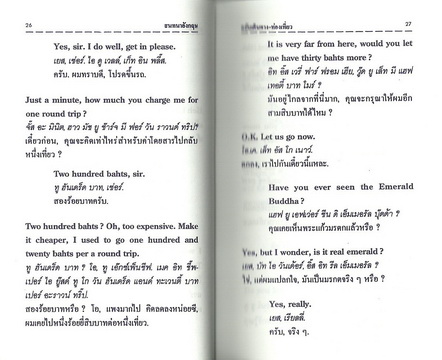 26
สนทนาอังกฤษ
Yes, sir. I do well, get in please.
เยส, เซ่อร์. ไอ ดู เวลล์, เก็ท อิน พลีส.
ครับ. ผมทราบดี, โปรดขึ้นรถ.
Just a minute, how much you charge me for
one round trip ?
จั๊ส อะ มินิต, ฮาว มัช ยู ช้าร์จ มี ฟอร์ วัน ราวนด์ ทริป?
เดี๋ยวก่อน, คุณจะคิดเท่าไหร่สำหรับค่าโดยสารไปกลับ
หนึ่งเที่ยว ?
Two hundred bahts, sir.
ทู ฮันเดร็ด บาท, เซ่อร์.
สองร้อยบาทครับ.
Two hundred bahts ? Oh, too expensive. Make
it cheaper, I used to go one hundred and
twenty bahts per a round trip.
ทู ฮันเดร็ด บาท ? โอ, ทู เอ็กซ์เพ็นซีฟ. เมค อิท ชี้พ-
เปอร์ ไอ ยู๊สด์ ทู โก วัน ฮันเดร็ด แอนด์ ทะเวนตี้ บาท
เปอร์ อะราวน์ ทริ๊ป.
สองร้อยบาทหรือ ? โอ, แพงมากไป คิดลดลงหน่อยซี,
ผมเคยไปหนึ่งร้อยยี่สิบบาทต่อหนึ่งเที่ยว.
27
เดินทาง-ท่องเที่ยว
It is very far from here, would you let
me have thirty bahts more ?
อิท อิ๊ส เวรี่ ฟาร์ ฟรอม เฮีย, วู้ด ยู เล็ท มี แฮฟ
เทอตี้ บาท โมร์ ?
มันอยู่ไกลจากที่นี่มาก, คุณจะกรุณาให้ผมอีก
สามสิบบาทได้ไหม ?
O.K. Let us go now.
โอ.เค. เล็ท อัส โก เนาว์.
ตกลง, เราไปกันเดี๋ยวนี้แหละ.
Have you ever seen the Emerald
Buddha ?
แฮฟ ยู เอฟเว่อร์ ซีน ดิ เอ็มเมอรัล บุ๊ดด้า ?
คุณเคยเห็นพระแก้วมรดกแล้วหรือ ?
Yes, but I wonder, is it real emerald ?
เยส, บัท ไอ วันเด้อร์, อิ๊ส อิท รีล เอ็มเมอรัล ?
ใช่, แต่ผมแปลกใจ, มันเป็นมรกตจริง ๆ หรือ ?
Yes, really.
เยส, เรียลลี่.
ครับ, จริง ๆ.